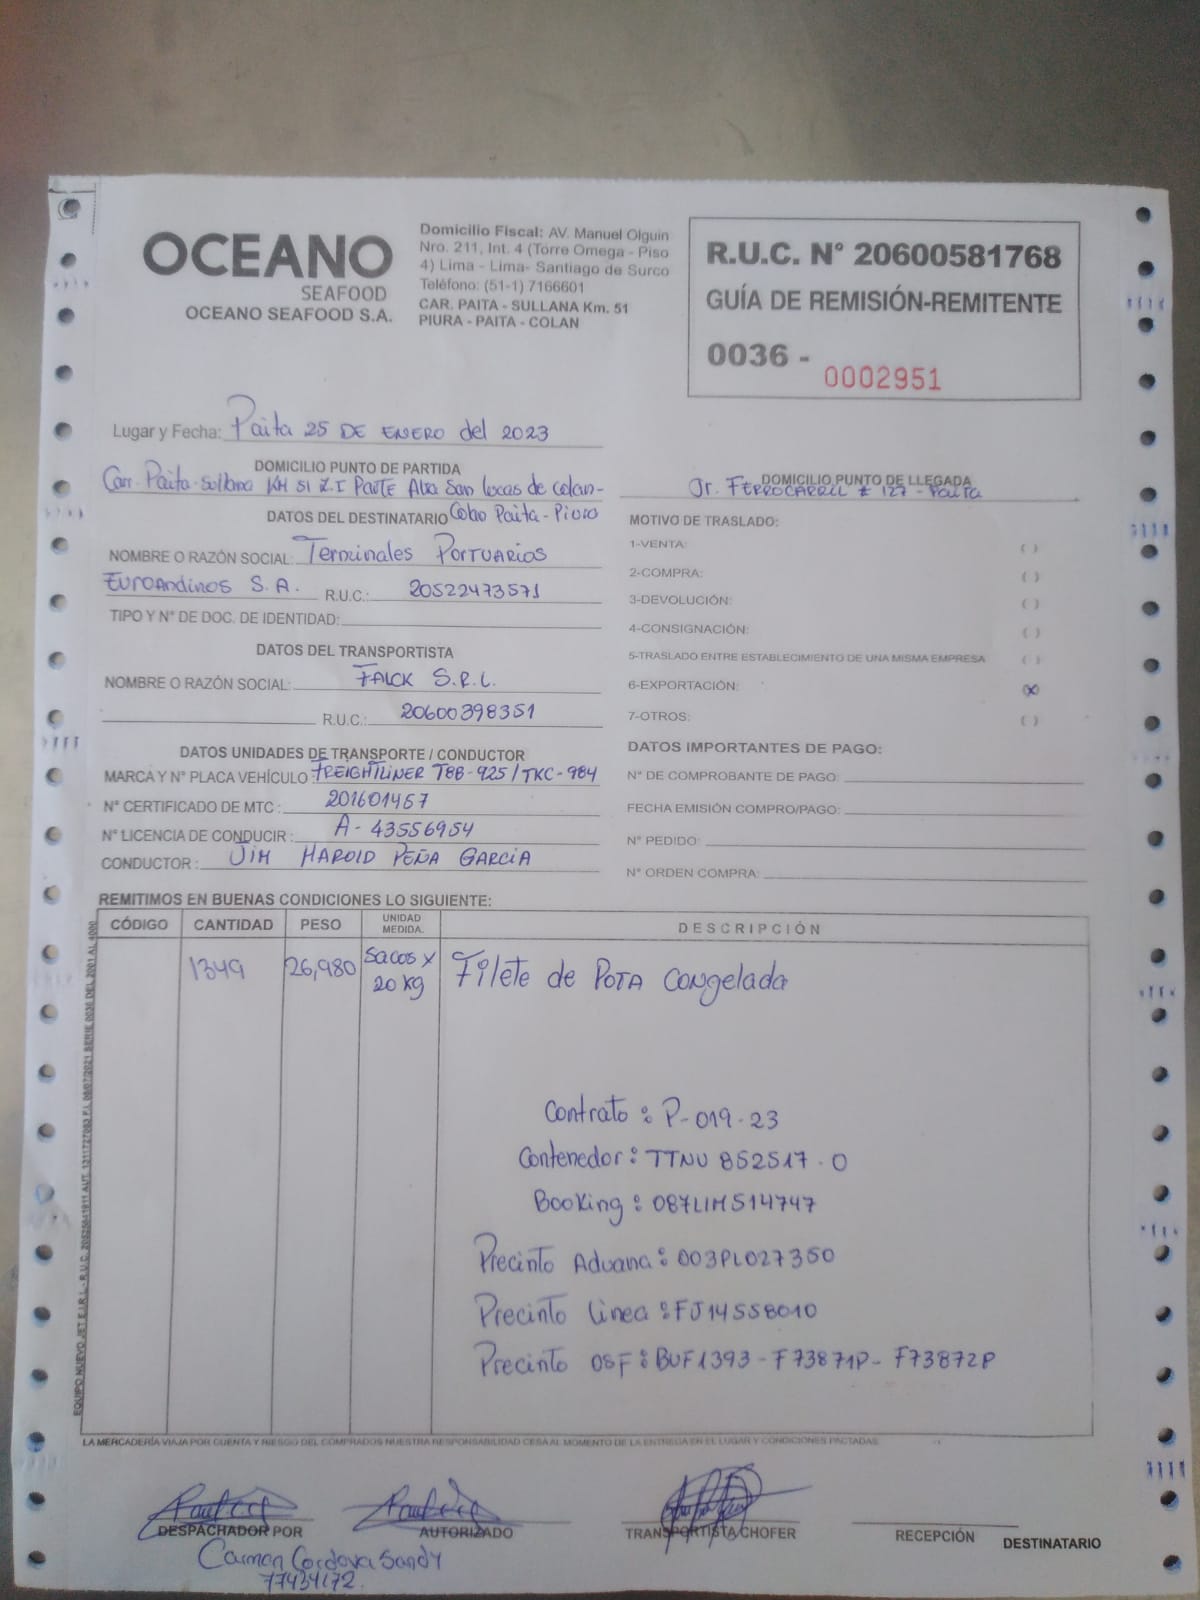 OCEANO
SEAFOOD
OCEANO SEAFOOD S.A.
Domicilio Fiscal: AV. Manuel Olguin
Nro. 211, Int. 4 (Torre Omega - Piso
4) Lima - Lima- Santiago de Surco
Teléfono: (51-1) 7166601
CAR. PAITA - SULLANA Km. 51
PIURA - PAITA - COLAN
R.U.C. N° 20600581768
GUÍA DE REMISIÓN-REMITENTE
0036 - 0002951
Lugar y Fecha: Paita 25 DE ENERO del 2023
DOMICILIO PUNTO DE PARTIDA
Carr. Paita-Sullana KM 51 Z.I Parte Alta San Lucas de Colan-
Paita - Piura
DOMICILIO PUNTO DE LLEGADA
Jr. FERROCARRIL # 127 - Paita
DATOS DEL DESTINATARIO
NOMBRE O RAZÓN SOCIAL: Terminales PORTUARIOS
EUROANDINOS S.A. R.U.C.: 20522473571
TIPO Y N° DE DOC. DE IDENTIDAD:
DATOS DEL TRANSPORTISTA
NOMBRE O RAZÓN SOCIAL: FALCK S.R.L.
R.U.C.: 20600398351
DATOS UNIDADES DE TRANSPORTE / CONDUCTOR
MARCA Y N° PLACA VEHÍCULO: FREIGHTLINER T8B-925/TKC-984
N° CERTIFICADO DE MTC: 201601457
N° LICENCIA DE CONDUCIR: A-43556954
CONDUCTOR: JIM HAROLD PEÑA GARCIA
MOTIVO DE TRASLADO:
1-VENTA: ( )
2-COMPRA: ( )
3-DEVOLUCIÓN: ( )
4-CONSIGNACIÓN: ( )
5-TRASLADO ENTRE ESTABLECIMIENTO DE UNA MISMA EMPRESA ( )
6-EXPORTACIÓN: (X)
7-OTROS: ( )
DATOS IMPORTANTES DE PAGO:
N° DE COMPROBANTE DE PAGO:
FECHA EMISIÓN COMPRO/PAGO:
N° PEDIDO:
N° ORDEN COMPRA:
REMITIMOS EN BUENAS CONDICIONES LO SIGUIENTE:
CÓDIGO CANTIDAD PESO UNIDAD MEDIDA. DESCRIPCIÓN
1349 26,980 Sacos x 20 Kg Filete de POTA Congelada
Contrato: P-019-23
Contenedor: TTNU 852517-0
Booking: 087LIM514747
Precinto Aduana: 003PL027350
Precinto Linea: FJ14558010
Precinto OSF: BUF1393-F73871P-F73872P
LA MERCADERÍA VIAJA POR CUENTA Y RIESGO DEL COMPRADOS NUESTRA RESPONSABILIDAD CESA AL MOMENTO DE LA ENTREGA EN EL LUGAR Y CONDICIONES PACTADAS
DESPACHADOR POR
AUTORIZADO
TRANSPORTISTA CHOFER
RECEPCIÓN DESTINATARIO
Carmen Cordova Sandy
77434172